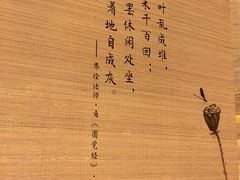 叶乱成堆，
来千百回；
罢休闲处坐，
着地自成灰。
法师·看《圆觉经》·